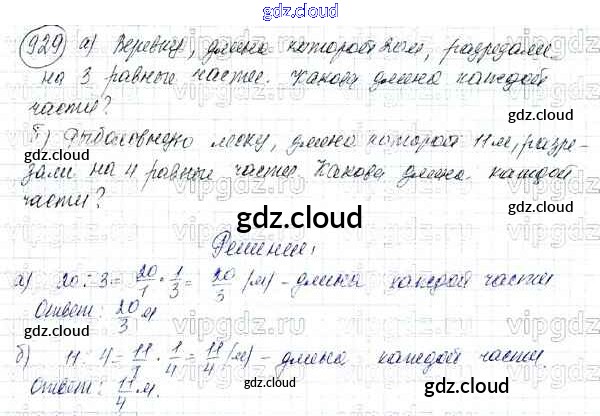 gdz.cloud
929 а) Веревку, длина которой 20м, разрезали
на 3 равные части. Какова длина каждой
части?
gdz.cloud
б) Рыболовную леску, длина которой 11м, разре-
gdz.cloud
зали на 4 равные части. Какова длина каждой
gdz.cloud
части?
gdz.cloud
gdz.cloud
Решение:
а) 20 : 3 = 20/1 · 1/3 = 20/3 (м) – длина каждой части
gdz.cloud
Ответ: 20/3 м
gdz.cloud
б) 11 : 4 = 11/1 · 1/4 = 11/4 (м) – длина каждой части.
gdz.cloud
Ответ: 11/4 м.
gdz.cloud